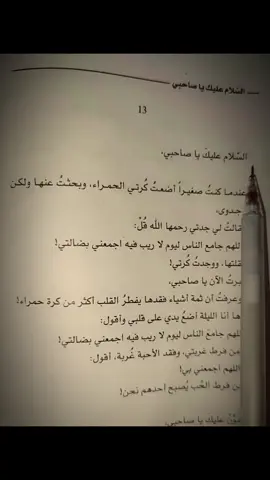 السّلام عليك يا صاحبي
13
السّلام عليكَ يا صاحبي،
عندما كنتُ صغيراً أضعتُ كُرتي الحمراء، وبحثتُ عنها ولكن
جدوى،
قالتْ لي جدتي رحمها الله قُلْ:
للهم جامع الناس ليوم لا ريب فيه اجمعني بضالتي!
قلتها، ووجدتُ كُرتي!
برتُ الآن يا صاحبي،
وعرفتُ أن ثمة أشياء فقدها يفطرُ القلب أكثر من كرة حمراء!
ها أنا الليلة أضعُ يدي على قلبي وأقول:
لهم جامع الناس ليوم لا ريب فيه اجمعني بضالتي!
من فرط غربتي، وفقد الأحبة غُربة، أقول:
اللهم اجمعني بي!
من فرط الحُب يُصبح أحدهم نحن!
عليك يا صاحبي